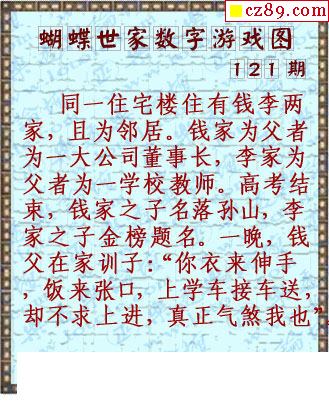 cz89.com
蝴蝶世家数字游戏图
121期
同一住宅楼住有钱李两
家，且为邻居。钱家为父者
为一大公司董事长，李家为
父者为一学校教师。高考结
束，钱家之子名落孙山，李
家之子金榜题名。一晚，钱
父在家训子：“你衣来伸手
，饭来张口，上学车接车送，
却不求上进，真正气煞我也”